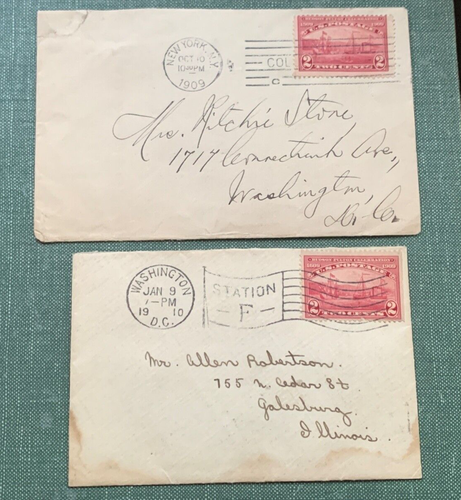 NEW YORK, N.Y.
OCT 10
10-PM
1909
COL
C
U.S. POSTAGE
2 TWO CENTS 2
Mrs. Ritchie Stone,
1717 Connecticut Ave.,
Washington,
D. C.
WASHINGTON
JAN 9
7-PM
19 10
D.C.
STATION
F
HUDSON-FULTON CELEBRATION
U.S. POSTAGE
2 TWO CENTS 2
Mr. Allen Robertson.
755 N. Cedar St.
Galesburg.
Illinois.